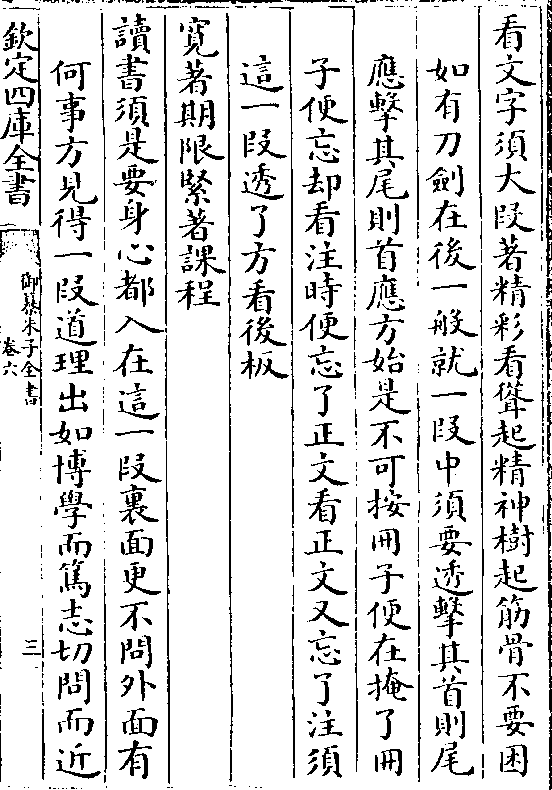 看文字須大段著精彩看聳起精神樹起筋骨不要困
如有刀劍在後一般就一段中須要透擊其首則尾
應擊其尾則首應方始是不可按冊子便在掩了冊
子便忘却看注時便忘了正文看正文又忘了注須
這一段透了方看後板
寛著期限緊著課程
讀書須是要身心都入在這一段裏面更不問外面有
何事方見得一段道理出如博學而篤志切問而近
欽定四庫全書
御纂朱子全書
卷六
三